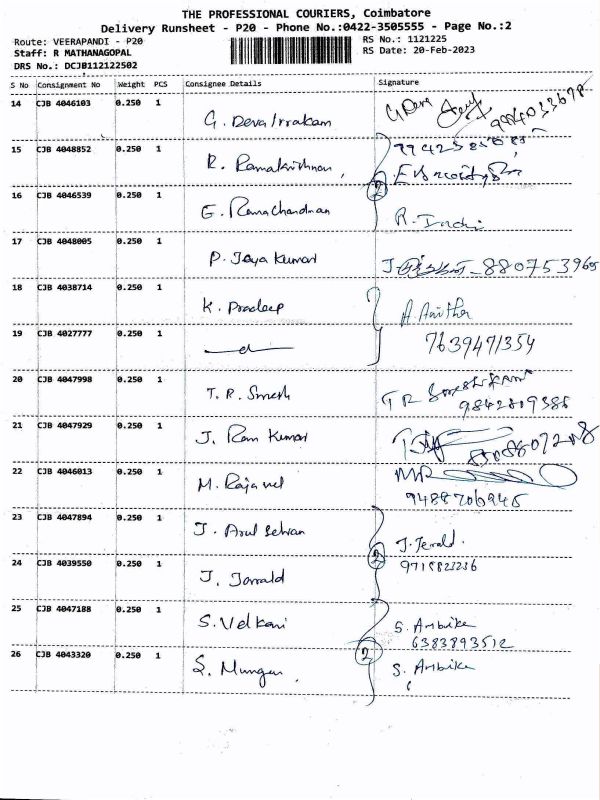 THE PROFESSIONAL COURIERS, Coimbatore
Delivery Runsheet - P20 - Phone No.:0422-3505555 - Page No.:2
Route: VEERAPANDI - P20
RS No.: 1121225
Staff: R MATHANAGOPAL
RS Date: 20-Feb-2023
DRS No.: DCJB112122502
S No Consignment No Weight PCS Consignee Details Signature
14 CJB 4046103 0.250 1 G. Devairrakam G Deva 9984033678
15 CJB 4048852 0.250 1 R. Ramakrishnan,
16 CJB 4046539 0.250 1 G. Ramachandran R. Indri
2
17 CJB 4048005 0.250 1 P. Jaya Kumar 880753965
18 CJB 4038714 0.250 1 K. Pradeep A. Anitha
19 CJB 4027777 0.250 1 7639471354
20 CJB 4047998 0.250 1 T. R. Suresh T R
9842809386
21 CJB 4047929 0.250 1 J. Ram Kumar
22 CJB 4046013 0.250 1 M. Rajavel MR
9488706946
23 CJB 4047894 0.250 1 J. Arul Selvan J. Jerald.
2
24 CJB 4039550 0.250 1 J. Jarrald 9715823236
25 CJB 4047188 0.250 1 S. Velkani S. Ambika
6383893512
2
26 CJB 4043320 0.250 1 S. Murugan. S. Ambika